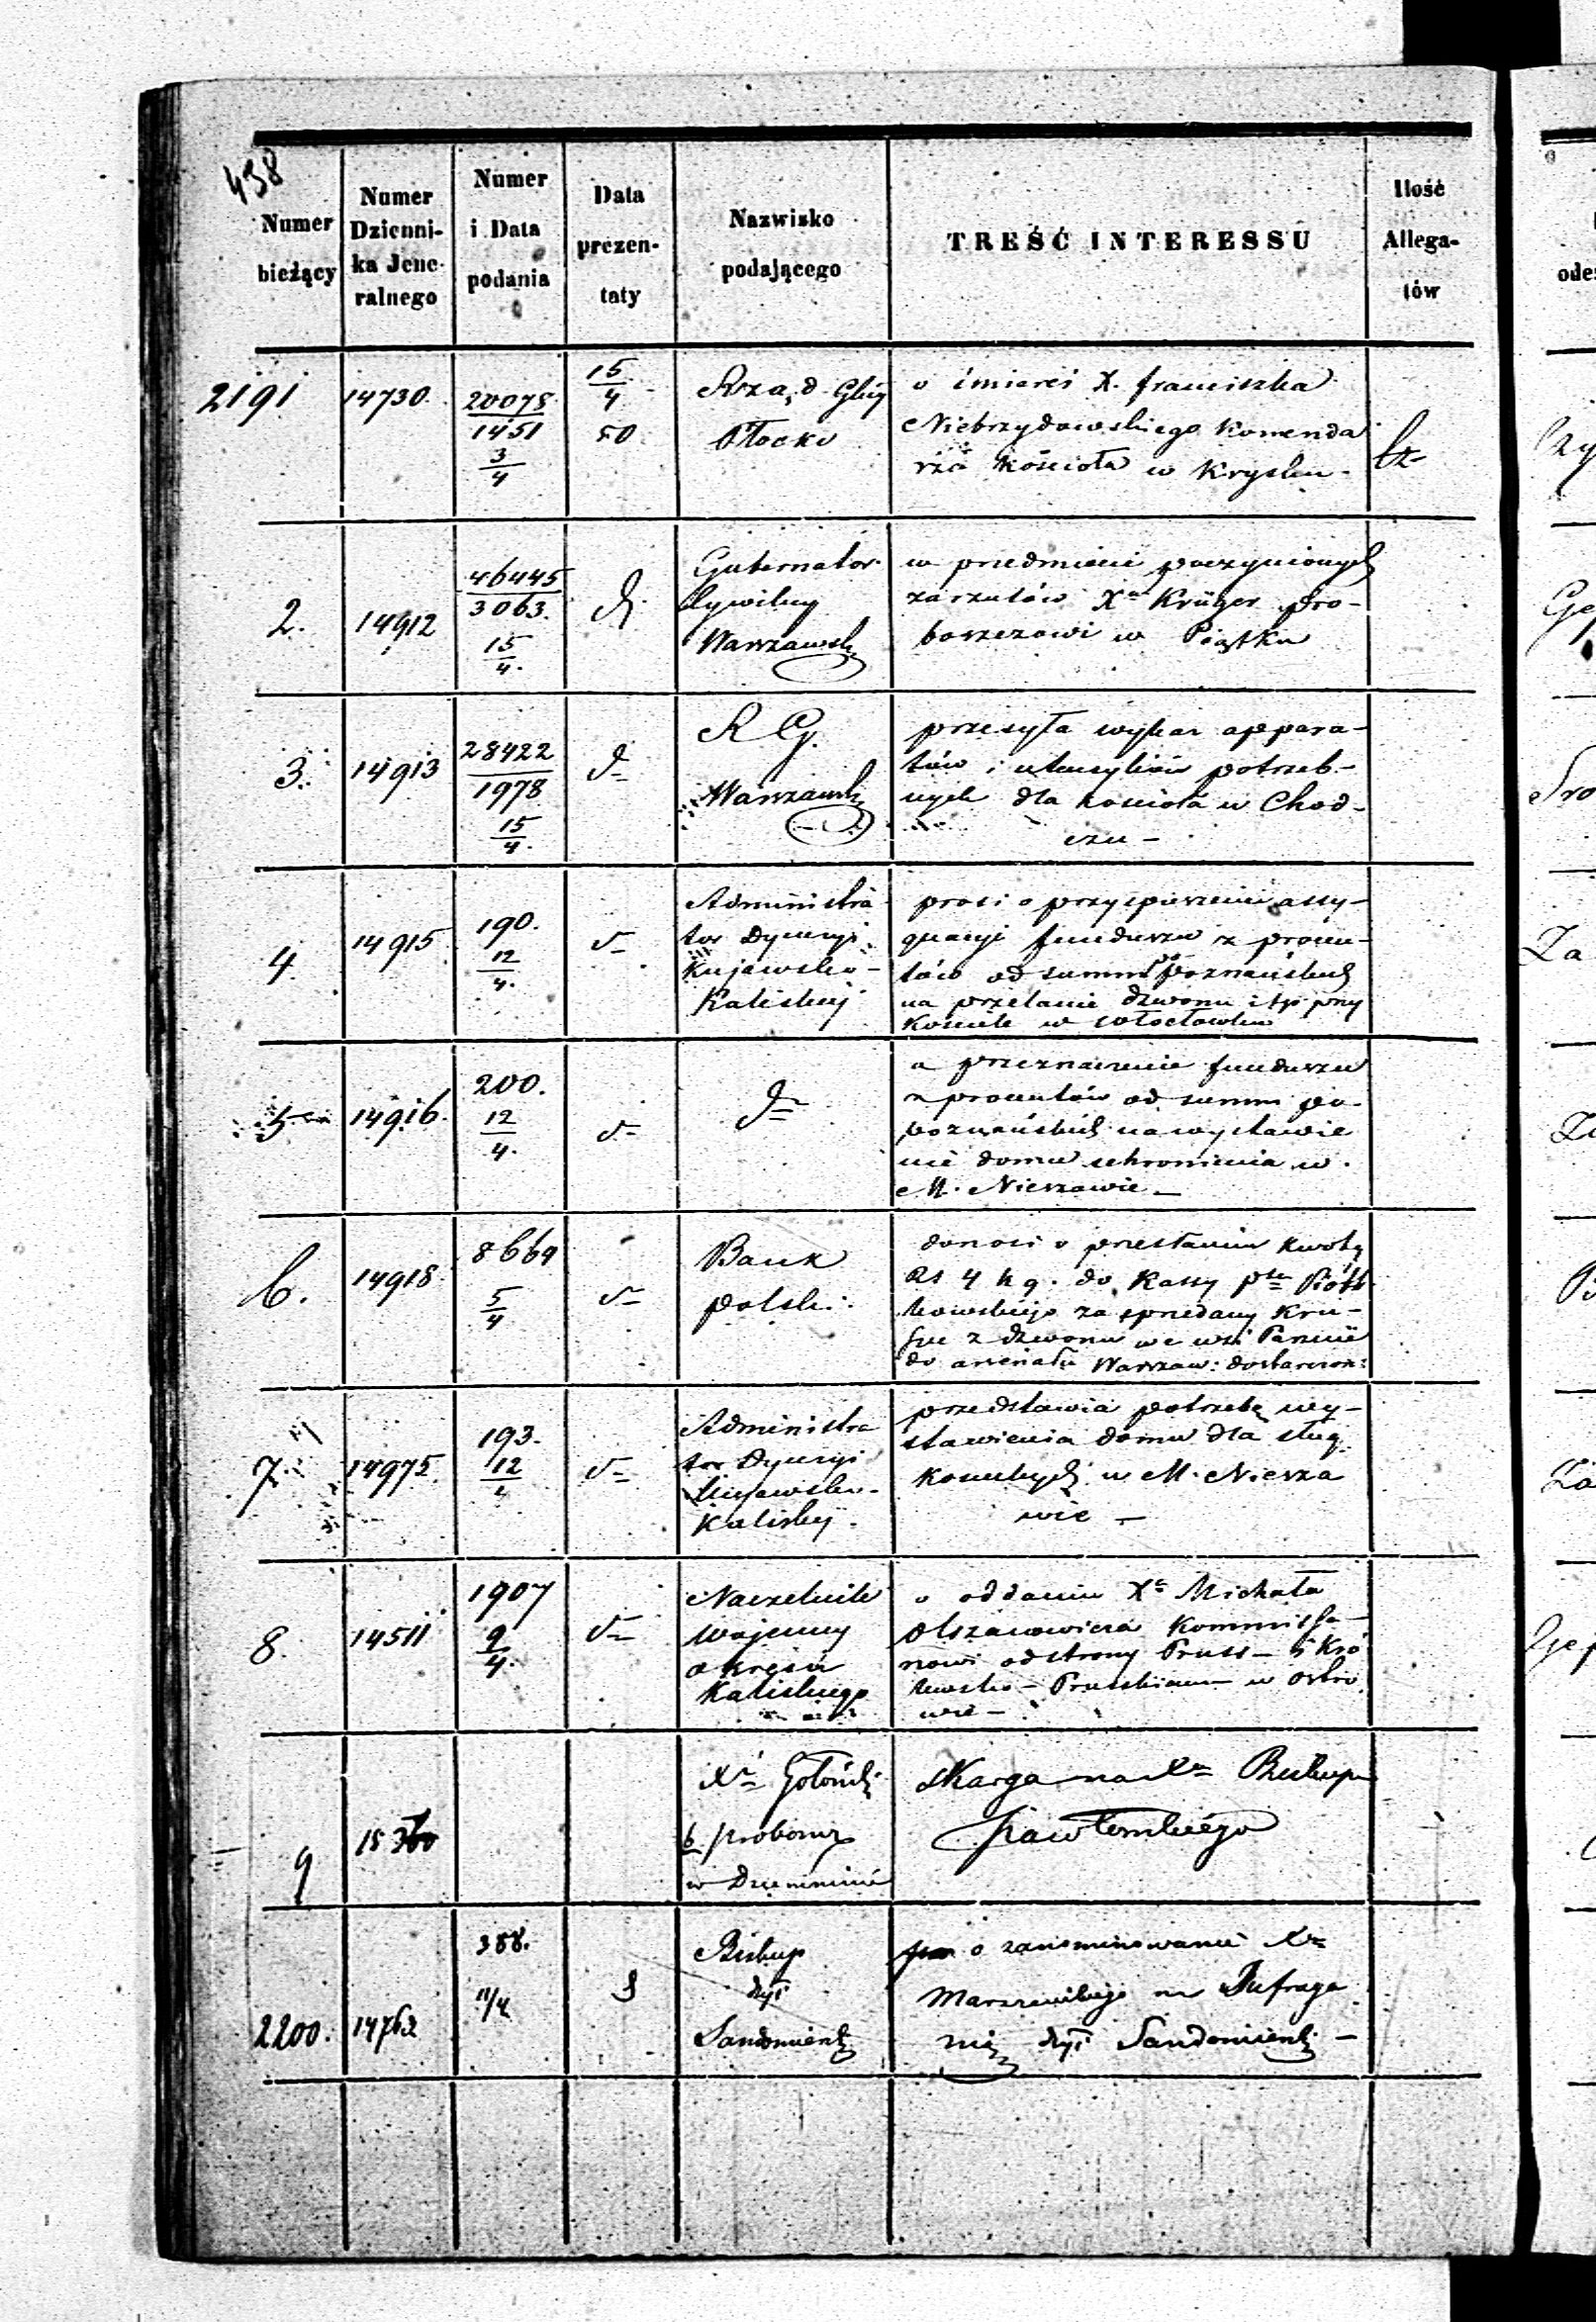 438
Numer bieżący
Numer Dzienni- ka Jene- ralnego
Numer i Data podania
Data prezen- taty
Nazwisko podającego
TREŚĆ INTERESSU
Ilość Allega- tów
2191
14730.
20078
1451
3/4
15/4
50
Rząd Gbny
Płocki
o śmierci X. franciszka
Niebrzydowskiego Komenda
rza Kościoła w Krysku -
2.
14912
46445
3063.
15/4.
Gubernator
Cywilny
Warszawski
w przedmiocie poczynionych
zarzutów Xu Krüger pro-
boszczowi w Piątku
3.
14913
28422
1978
15/4.
R G.
Warszawski
przesyła wykaz appara-
tów i utensyliów potrzeb-
nych dla kościoła w Chod-
czu -
4
14915
190.
12/4.
Administra
tor Dyecezyi
Kujawsko-
Kaliskiej
prosi o przyspieszenie assy-
gnacyi funduszu z procen-
tów od summ popoznańskich
na przelanie dzwonu i tp przy
Kościele w Włocławku
5
14916.
200.
12/4.
o przeznaczenie funduszu
z procentów od summ po-
poznańskich na wystawie
nie domu schronienia w
M. Nieszawie -
6.
14918
8669
5/4
Bank
polski
donosi o przesłaniu kwoty
Rs 4 k 9. do Kassy ptu Piotr
kowskiego za sprzedany kru-
szec z dzwonu we wsi Parznie
do arsenału Warszaw: dostarczon:
7.
14975
193.
12/4
Administra
tor Dyecezyi
Kujawsko-
Kaliskiej.
przedstawia potrzebę wy-
stawienia domu dla sług
Kościelnych w M. Niesza
wie -
8.
14511
1907
9/4.
Naczelnik
wojenny
okręgu
Kaliskiego
o oddaniu Xa Michała
Olszanowicza Kommissa-
rzowi od strony Pruss-
Prusskiemu w Ostro
wie -
9
15360
b. proboszcz
w
skarga na Xa Biskupa
2200.
14762
388.
11/4
Biskup
dyi
Sandomierski
o zanominowanie Xa
na Sufraga
nią dyi Sandomierski -